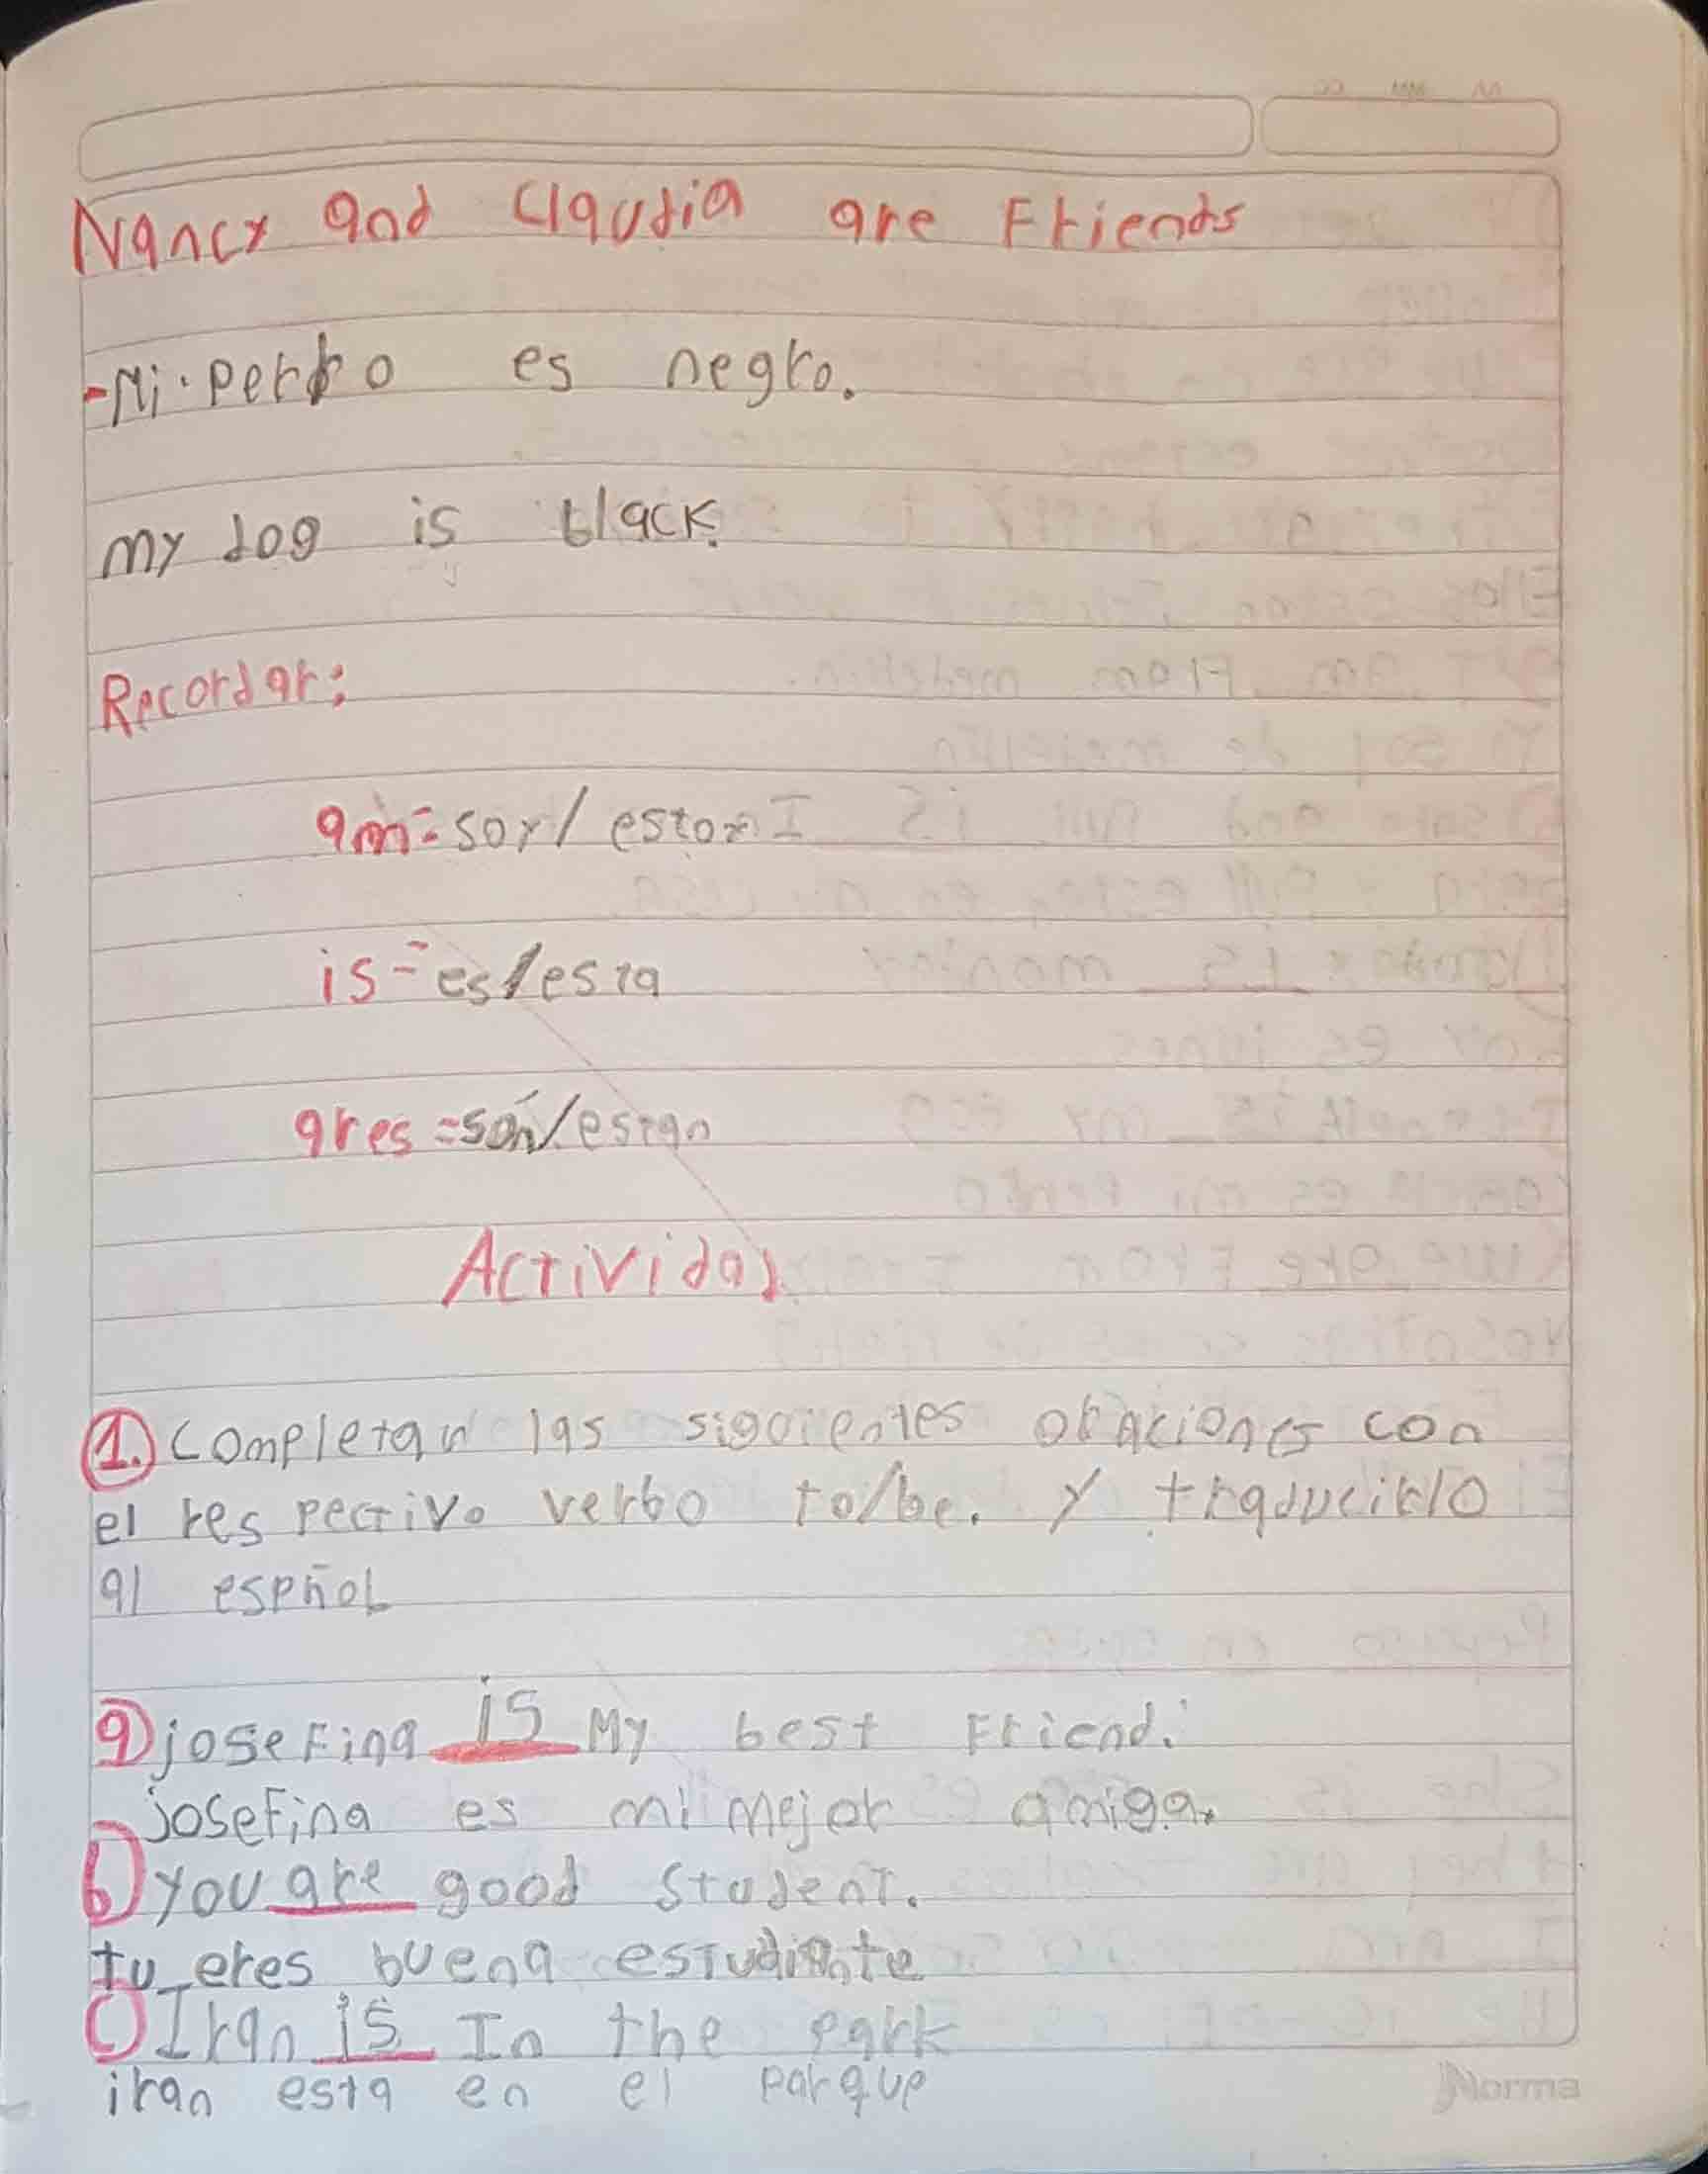 Nancy and Claudia are Friends
-Mi perro es negro.
my dog is black.
Recordar:
am=soy/estoy
is=es/esta
ares=son/estan
Actividad
1. Completar las siguientes oraciones con
el respectivo verbo to/be. y traducirlo
al españoL
a) josefina is My best Friend.
josefina es mi mejor amiga.
b) you are good student.
tu eres buena estudiante
c) Iran is In the park
iran esta en el parque
Norma